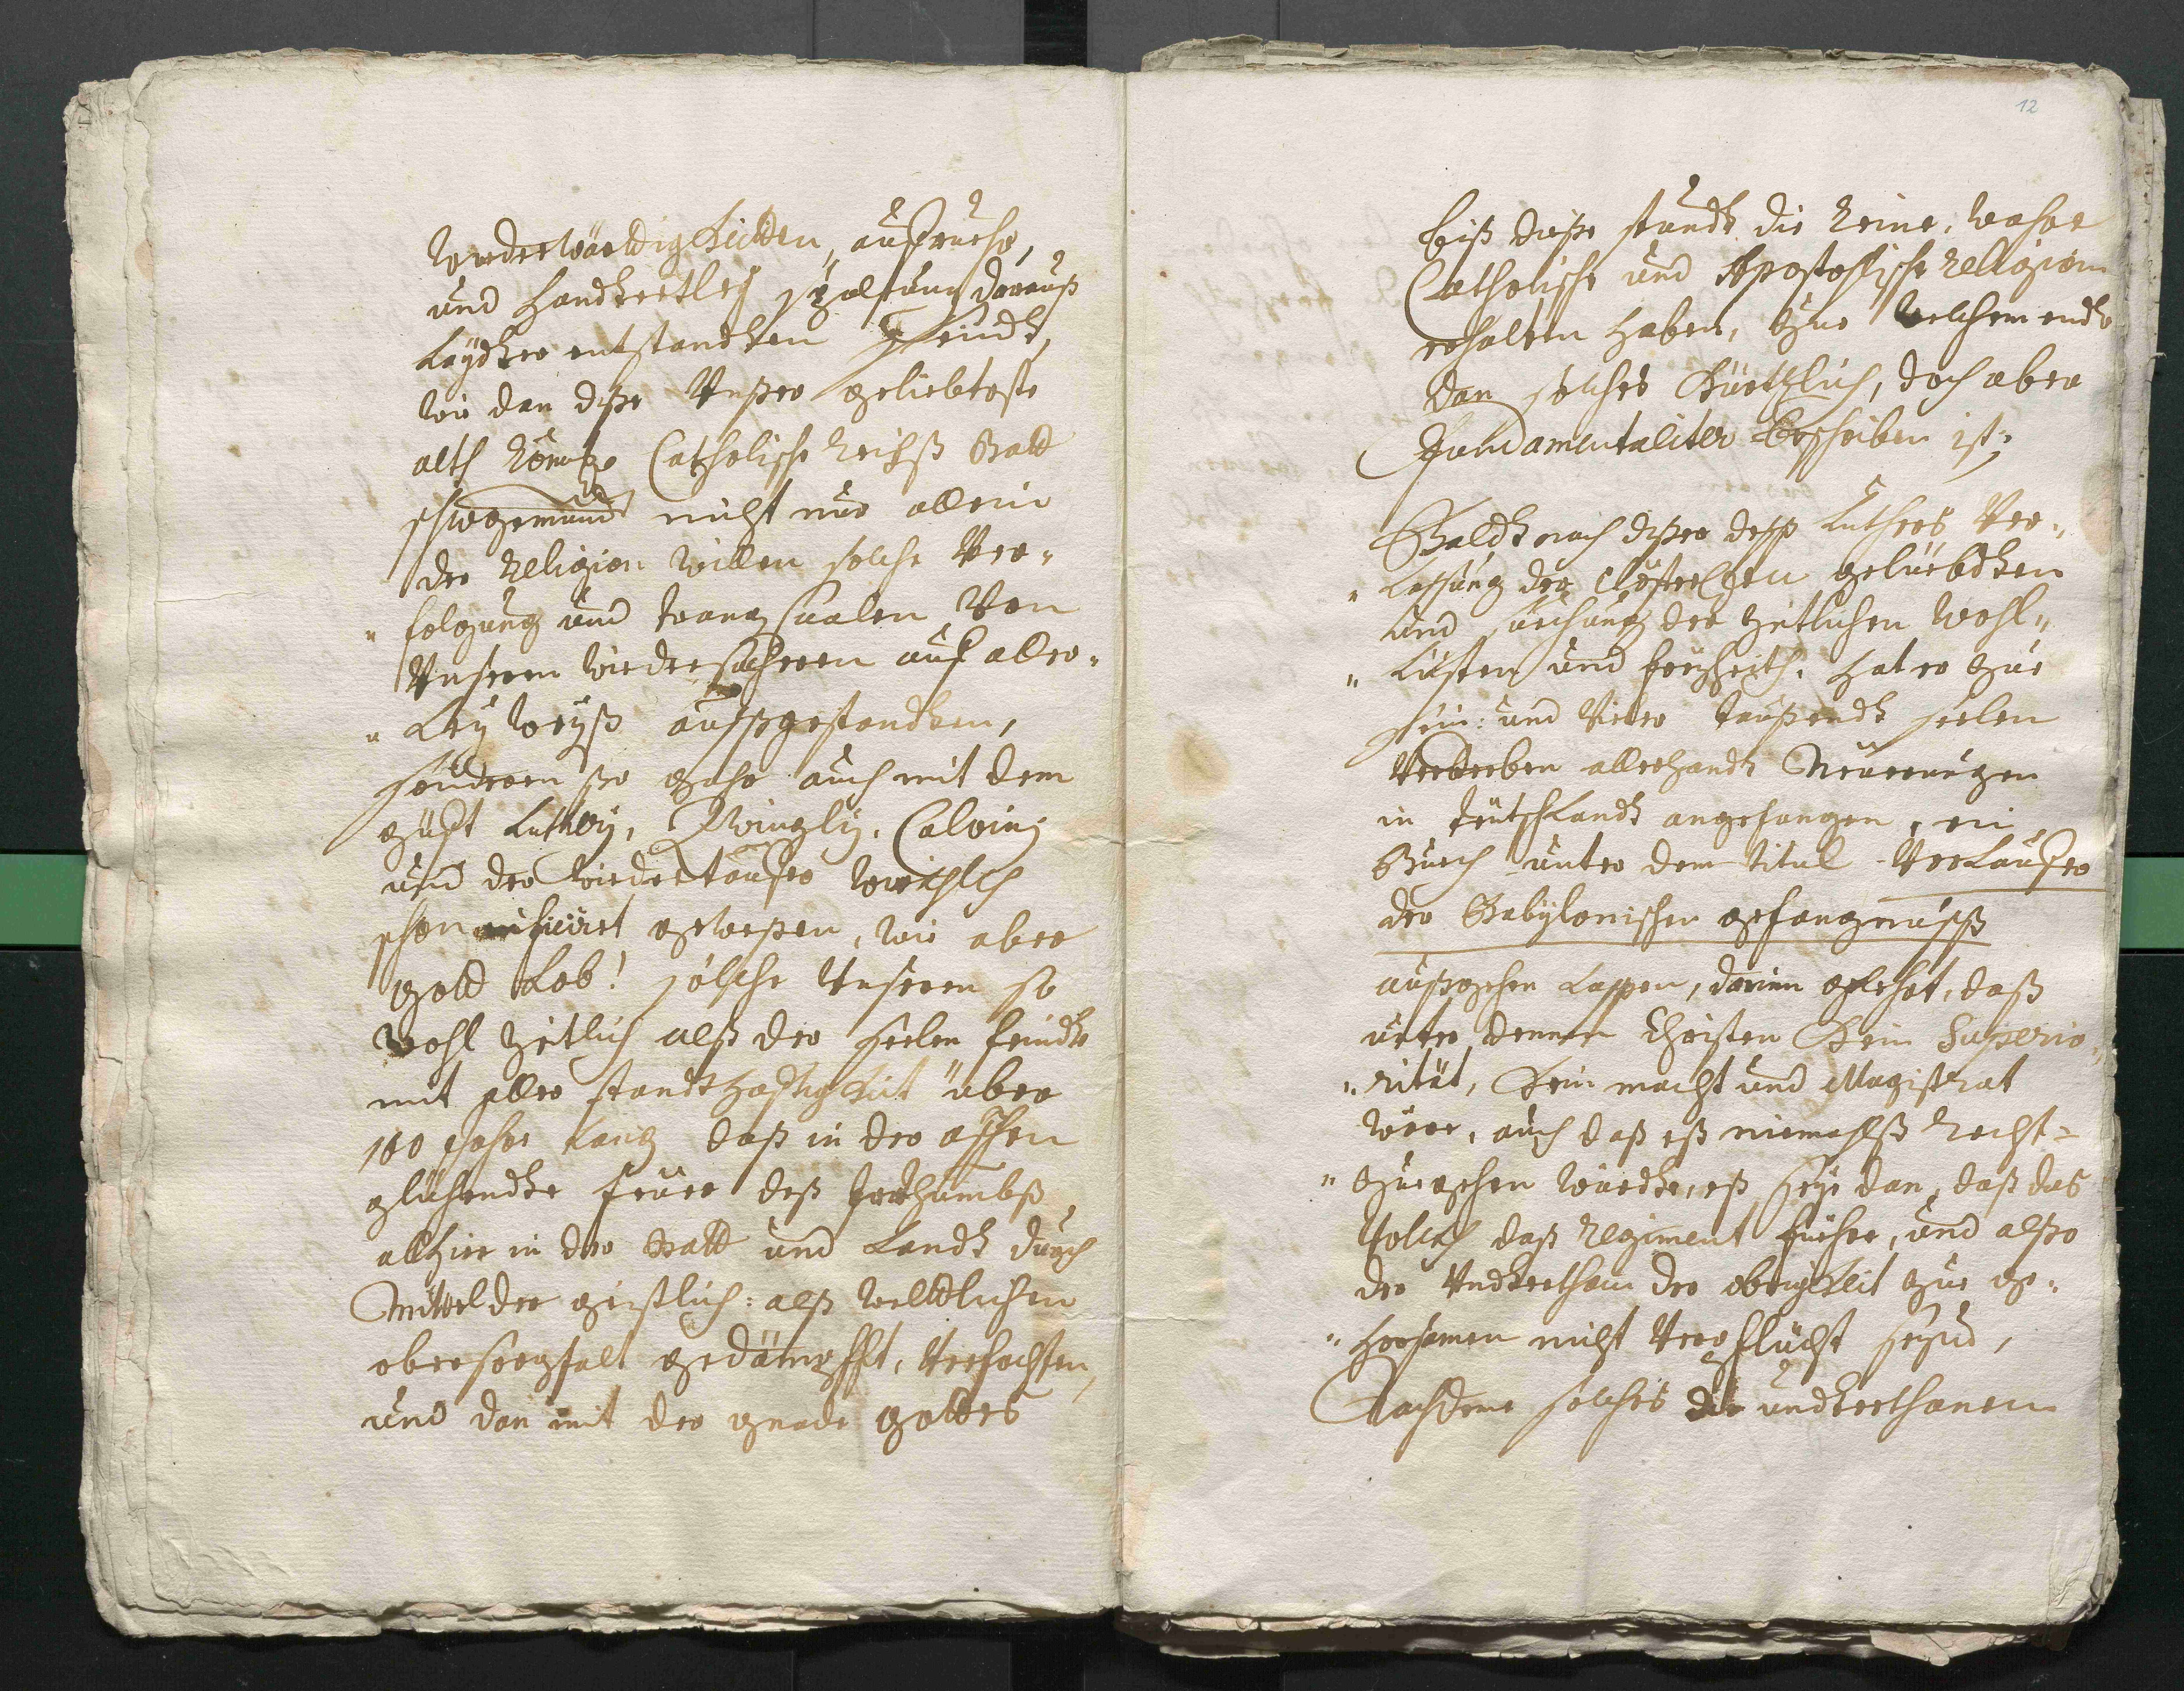 Wüderwärdigkeitten, aufruehr,
und handtertley spaltung darauß
Leydter entstandten seindt,
wie dan diße Unßer geliebtoste
alth Römbs Catholische Reichß Statt
schwgemünd nicht nur allein
der Religion willen solche Ver„
„folgung und trangsaalen Von
Unseren wiedersacheren auf aller„
„Ley weyß aufsgestandten,
sonderen ße gahr auch mit dem
güft Lutheri, Zwingly, Calvini
und der wiedertauffer würchlich
schon inficirt geweßen, wie aber
gott Lob! solche Unseren so
wohl zeitlich alß der Seelen feindte
mit aller standthaftigkeit über
100 Jahr Lang daß in der aschen
glühendte feüer deß Irrthumbß
allhier in der Statt und Landt durch
Mittel der geistlich: alß weltlichen
obersorgfalt gedämpfft, Verfochten,
und dan mit der gnade gottes
12
biß diße stundt die Reine, wahre
Catholische und Apostolische Religion
erhalten haben, zue welchem endte
dan solches Kürtzlich, doch aber
Fundamentaliter beschriben ist;
Baldt nach dißer deß Luthers Ver„
„Lassung der Clösterlichen gelüebdten
und suchung der zeitlichen wohl„
„Lüsten und freyheith, hat er zue
sein: und Vieler taußendt seelen
Verderben allerhandt Neuerungen
in Teütschlandt angefangen, ein
Buech unter dem titul Verkauffer
der Babylonischen gefangnusß
außgehen Lassen, darinn gelehrt, daß
unter dennen Christen Kein Superio„
„rität, Kein macht und Magistrat
wäre, auch daß eß niemahlß Recht=
„zuegehen würdte, eß seye dan, daß das
Volckh daß Regiment führe, und alßo
der Undterthan der obrigkeit zue ge„
„horsamen nicht Verpflücht seynd,
Nachdeme solches die undterthanen